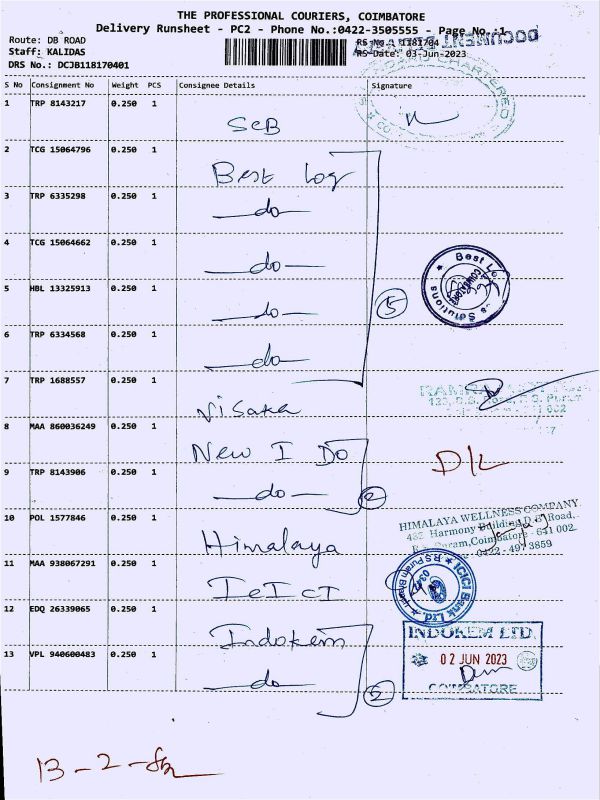 THE PROFESSIONAL COURIERS, COIMBATORE
Delivery Runsheet - PC2 - Phone No.:0422-3505555 - Page No.:1
Route: DB ROAD
RS No.: 1181704
Staff: KALIDAS
RS Date: 03-Jun-2023
DRS No.: DCJB118170401
S No Consignment No Weight PCS Consignee Details Signature
1 TRP 8143217 0.250 1
SCB
CHARTERED
2 TCG 15064796 0.250 1
Best Log
3 TRP 6335298 0.250 1
do
4 TCG 15064662 0.250 1
do
Best
5 HBL 13325913 0.250 1
do
5
6 TRP 6334568 0.250 1
do
7 TRP 1688557 0.250 1
Visaka
8 MAA 860036249 0.250 1
New I Do
9 TRP 8143906 0.250 1
do
2
10 POL 1577846 0.250 1
Himalaya
HIMALAYA WELLNESS COMPANY
Harmony Building, D.B. Road,
Puram, Coimbatore - 641 002.
0422 - 4973859
11 MAA 938067291 0.250 1
ICICI Bank Ltd.
12 EDQ 26339065 0.250 1
Indokem
INDOKEM LTD.
02 JUN 2023
COIMBATORE
13 VPL 940600483 0.250 1
do
2
13 - 2 -